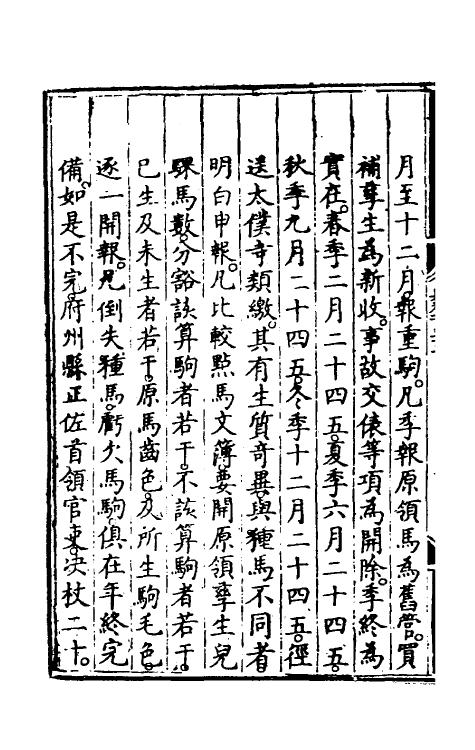 月至十二月報重駒。凡季報原領馬爲舊管。買
補孳生爲新收。事故交俵等項爲開除。季終爲
實在。春季二月二十四五。夏季六月二十四五。
秋季九月二十四五。冬季十二月二十四五。徑
送太僕寺類繳。其有生質奇異與種馬不同者
明白申報。凡比較點馬文簿。要開原領孳生兒
騍馬數。分豁該算駒者若干。不該算駒者若干。
已生及未生者若干。原馬齒色。及所生駒毛色。
逐一開報。凡倒失種馬。虧欠馬駒。俱在年終完
備。如是不完。府州縣正佐首領官吏。決杖二十。